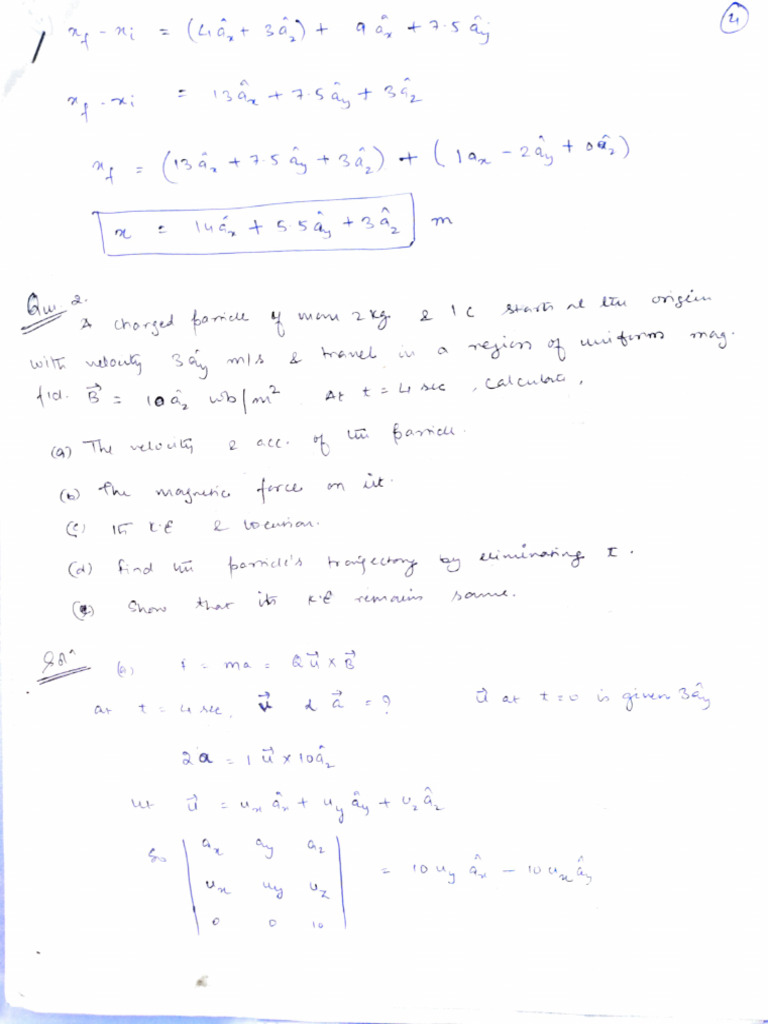 4
x_f - x_i = (4â_x + 3â_z) + 9â_x + 7.5â_y
x_f - x_i = 13â_x + 7.5â_y + 3â_z
x_f = (13â_x + 7.5â_y + 3â_z) + (1a_x - 2â_y + 0â_z)
x = 14â_x + 5.5â_y + 3â_z m
Qu. 2.
A charged particle of mass 2 kg & 1 C starts at the origin
with velocity 3â_y m/s & travel in a region of uniform mag.
fld. B⃗ = 10â_z wb/m² At t = 4 sec, calculate,
(a) The velocity & acc. of the particle.
(b) The magnetic force on it.
(c) Its K.E & location.
(d) find the particle's trajectory by eliminating t.
(e) Show that its K.E remains same.
Solⁿ (a) F = ma = Qu⃗ × B⃗
at t = 4 sec, u⃗ & a⃗ = ? u⃗ at t=0 is given 3â_y
2a = 1 u⃗ × 10â_z
let u⃗ = u_x â_x + u_y â_y + u_z â_z
So | a_x a_y a_z |
| u_x u_y u_z | = 10 u_y â_x - 10 u_x â_y
| 0 0 10 |